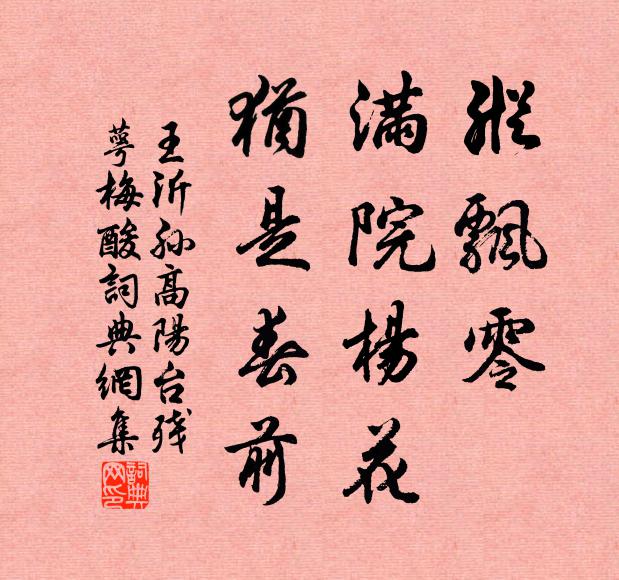 縱飄零
滿院楊花
猶是春前
王沂孙高陽台残
萼梅酸詞典網集
詞典
网印